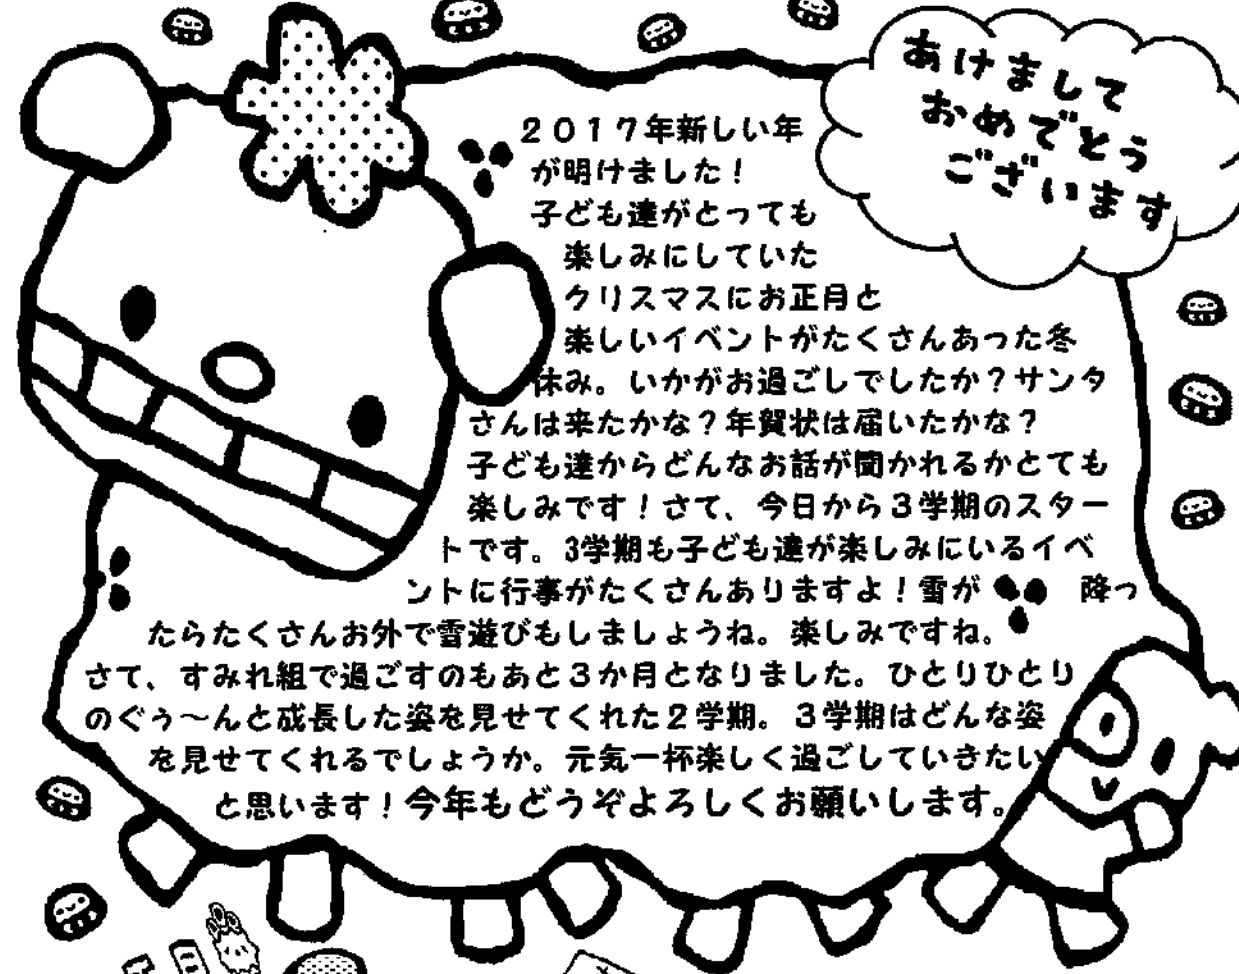 あけまして
おめでとう
ございます
２０１７年新しい年
が明けました！
子ども達がとっても
楽しみにしていた
クリスマスにお正月と
楽しいイベントがたくさんあった冬
休み。いかがお過ごしでしたか？サンタ
さんは来たかな？年賀状は届いたかな？
子ども達からどんなお話が聞かれるかとても
楽しみです！さて、今日から３学期のスター
トです。3学期も子ども達が楽しみにいるイベ
ントに行事がたくさんありますよ！雪が　降っ
たらたくさんお外で雪遊びもしましょうね。楽しみですね。
さて、すみれ組で過ごすのもあと３か月となりました。ひとりひとり
のぐぅ～んと成長した姿を見せてくれた２学期。３学期はどんな姿
を見せてくれるでしょうか。元気一杯楽しく過ごしていきたい
と思います！今年もどうぞよろしくお願いします。